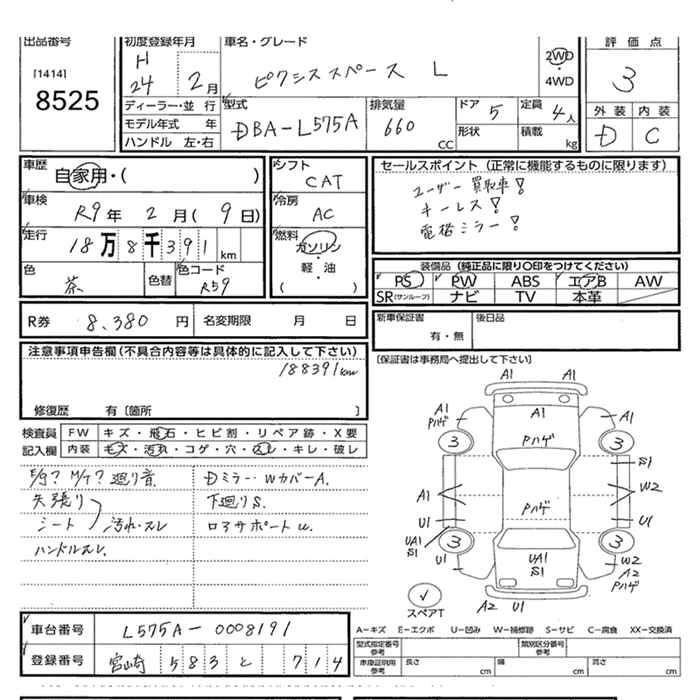 出品番号 初度登録年月 車名・グレード 評価点
[1414] H 24 2月 ピクシススペース L 2WD・4WD 3
8525 ディーラー・並行 型式 排気量 ドア 定員 外装 内装
モデル年式 年 DBA-L575A 660 5 4人 D C
ハンドル 左・右 CC 形状 積載 kg
車歴 自家用・( ) シフト CAT セールスポイント (正常に機能するものに限ります)
車検 R9年 2月( 9日) 冷房 AC ユーザー買取車!
キーレス!
電格ミラー!
走行 18万8千391km 燃料 ガソリン・軽油 ( )
色 茶 色替 色コード R59
装備品 (純正品に限り○印をつけてください)
PS PW ABS エアB AW
SR(サンルーフ) ナビ TV 本革
R券 8,380円 名変期限 月 日 新車保証書 有・無 後日品
注意事項申告欄(不具合内容等は具体的に記入して下さい) [保証書は事務局へ提出して下さい]
188391km
修復歴 有[箇所 ]
検査員 FW キズ・飛石・ヒビ割・リペア跡・X要
記入欄 内装 キズ・汚れ・コゲ・穴・スレ・キレ・破レ
E/g? M/T? 廻り音. Dミラー・WカバーA.
天張り 下廻りS.
シート 汚れ・スレ ロアサポートW.
ハンドルスレ.
A1 A1
A1 A1 A1
Pハゲ Pハゲ
3 3
S1
A1 Pハゲ W2
U1 U1
UA1 S1 3 3
U1 UA1 S1 W2
A2
Pハゲ
スペアT A2 U1
A-キズ E-エクボ U-凹み W-補修跡 S-サビ C-腐食 XX-交換済
車台番号 L575A-0008191 型式指定番号 参考 類別区分番号 参考
登録番号 宮崎 583 と 714 車庫証明用 参考 長さ cm 幅 cm 高さ cm